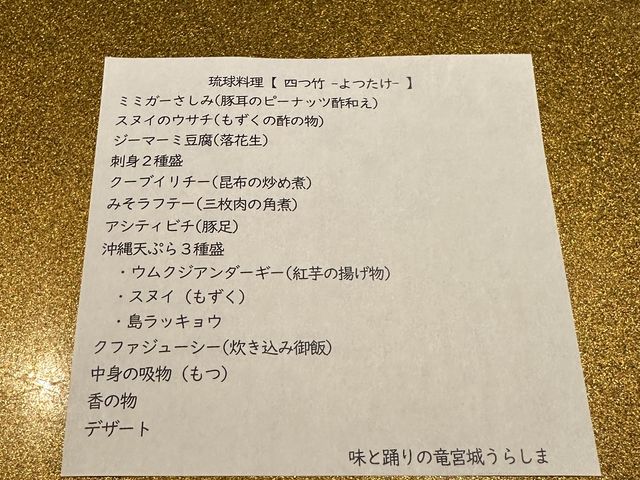 琉球料理【 四つ竹 -よつたけ- 】
ミミガーさしみ(豚耳のピーナッツ酢和え)
スヌイのウサチ(もずくの酢の物)
ジーマーミ豆腐(落花生)
刺身２種盛
クーブイリチー(昆布の炒め煮)
みそラフテー(三枚肉の角煮)
アシティビチ(豚足)
沖縄天ぷら３種盛
・ウムクジアンダーギー(紅芋の揚げ物)
・スヌイ（もずく）
・島ラッキョウ
クファジューシー(炊き込み御飯)
中身の吸物（もつ）
香の物
デザート
味と踊りの竜宮城うらしま